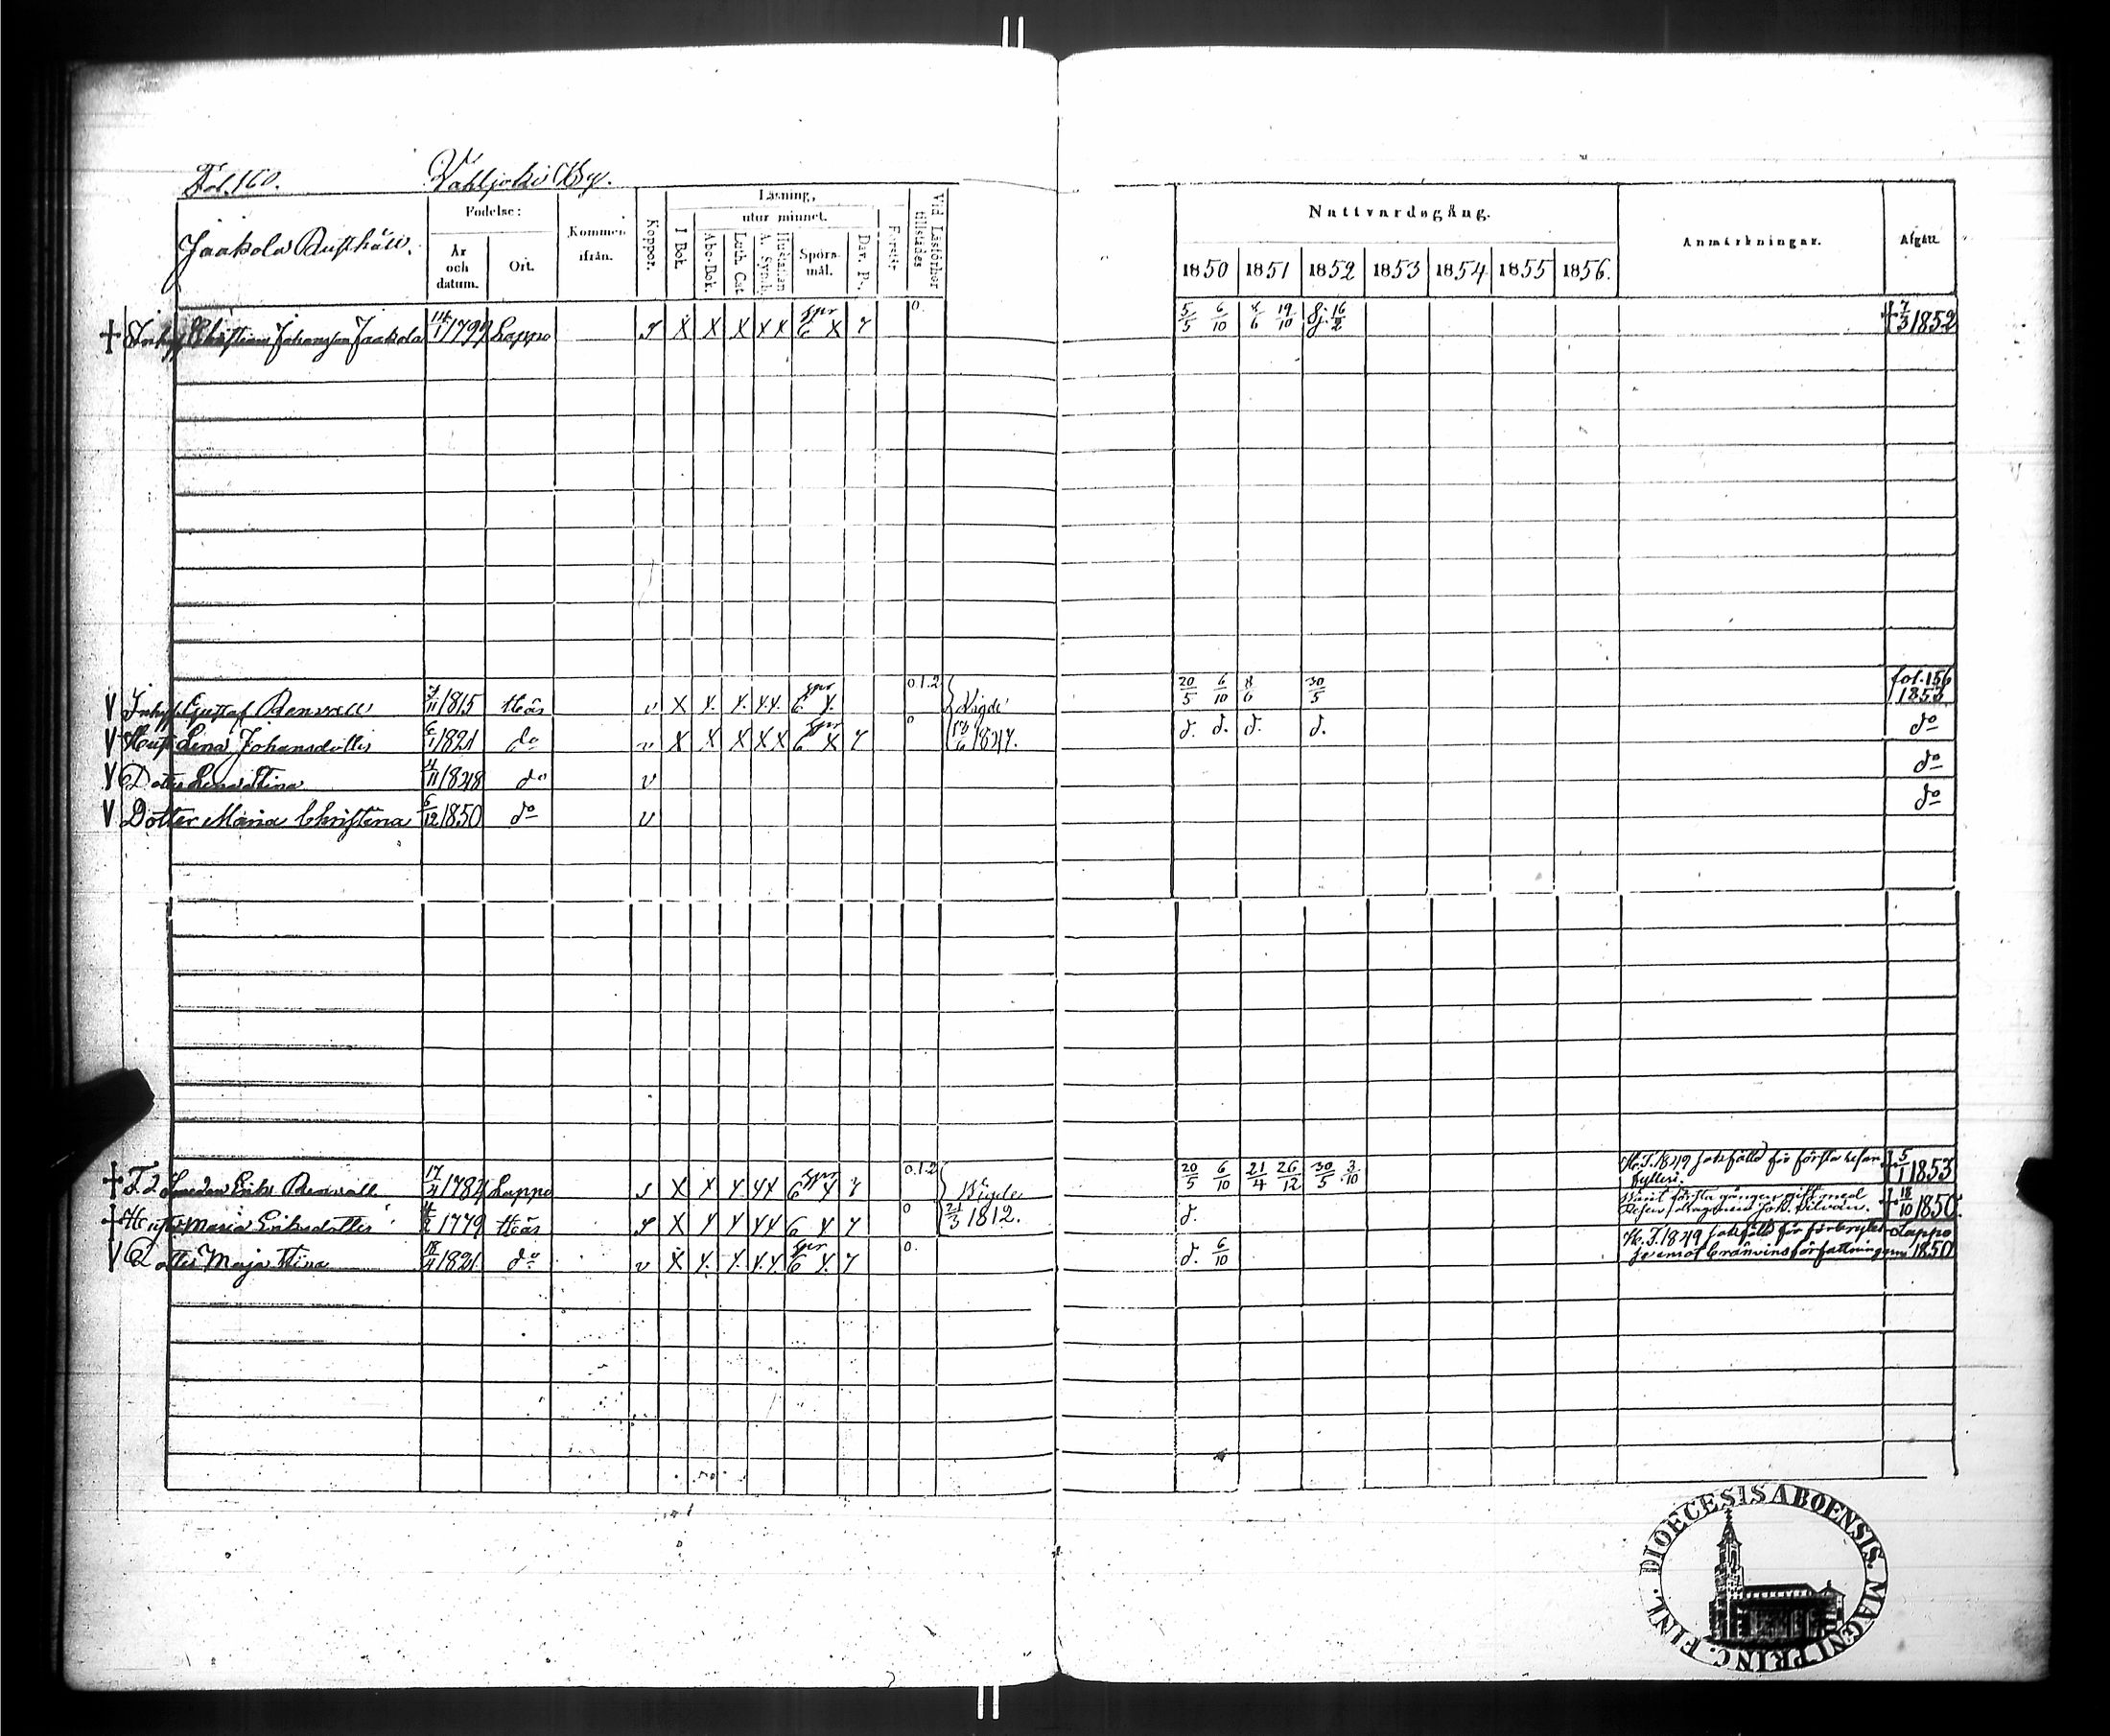 Fol. 160. Vahljoki By.
Jaakola Rusthåll.
Födelse:
År och datum.
Ort.
Kommen ifrån.
Koppor.
Läsning,
utur minnet.
I Bok.
Abc-Bok.
Luth. Cat.
Hustaflan, A. Symb.
Spörs-mål.
Dav. Ps.
Förstår
Vid Läsförhör tillstädes
Nattvardsgång.
1850 1851 1852 1853 1854 1855 1856.
Anmärkningar.
Afgått
† Christian Johansson Jaakola 14/1 1799 Lappo X X X X X 6 spr X 7 0 5/5 6/10 8/6 19/10 16/2 † 7/3 1852
V Gustaf Renvall 7/11 1815 v X Y. Y. Y.Y. 6 spr Y. 0.1.2 Vigde 20/5 6/10 8/6 30/5 fol. 156
V Hust. Lena Johansdotter 6/1 1821 do v X X X X X 6 spr X 7 0 1847. d. d. d. d. do
V Dotter Lena Stina 4/11 1848 do v do
V Dotter Maria Christina 6/12 1850 do v do
† Smeden Erik Renvall 17/4 1782 Lappo X Y Y. Y Y 6 spr Y 7 0.1.2 Vigde 20/5 6/10 21/4 26/12 30/5 3/10 1849 sakfälld för första resan fylleri. † 5/1 1853
† Hustr Maria Eriksdotter 1779 X Y Y Y Y 6 Y 7 0 21/3 1812. d. första gången gift med Joh. † 18/10 1850.
V Dotter Maja Stina 18/4 1821. do v X Y. Y. Y.Y. 6 spr Y. 7 0. d. 6/10 1849 sakfälld för förbrytelse emot bränvinsförfattningen Lappo 1850
FINL. DIOECESIS ABOENSIS. MAGNI PRINC.